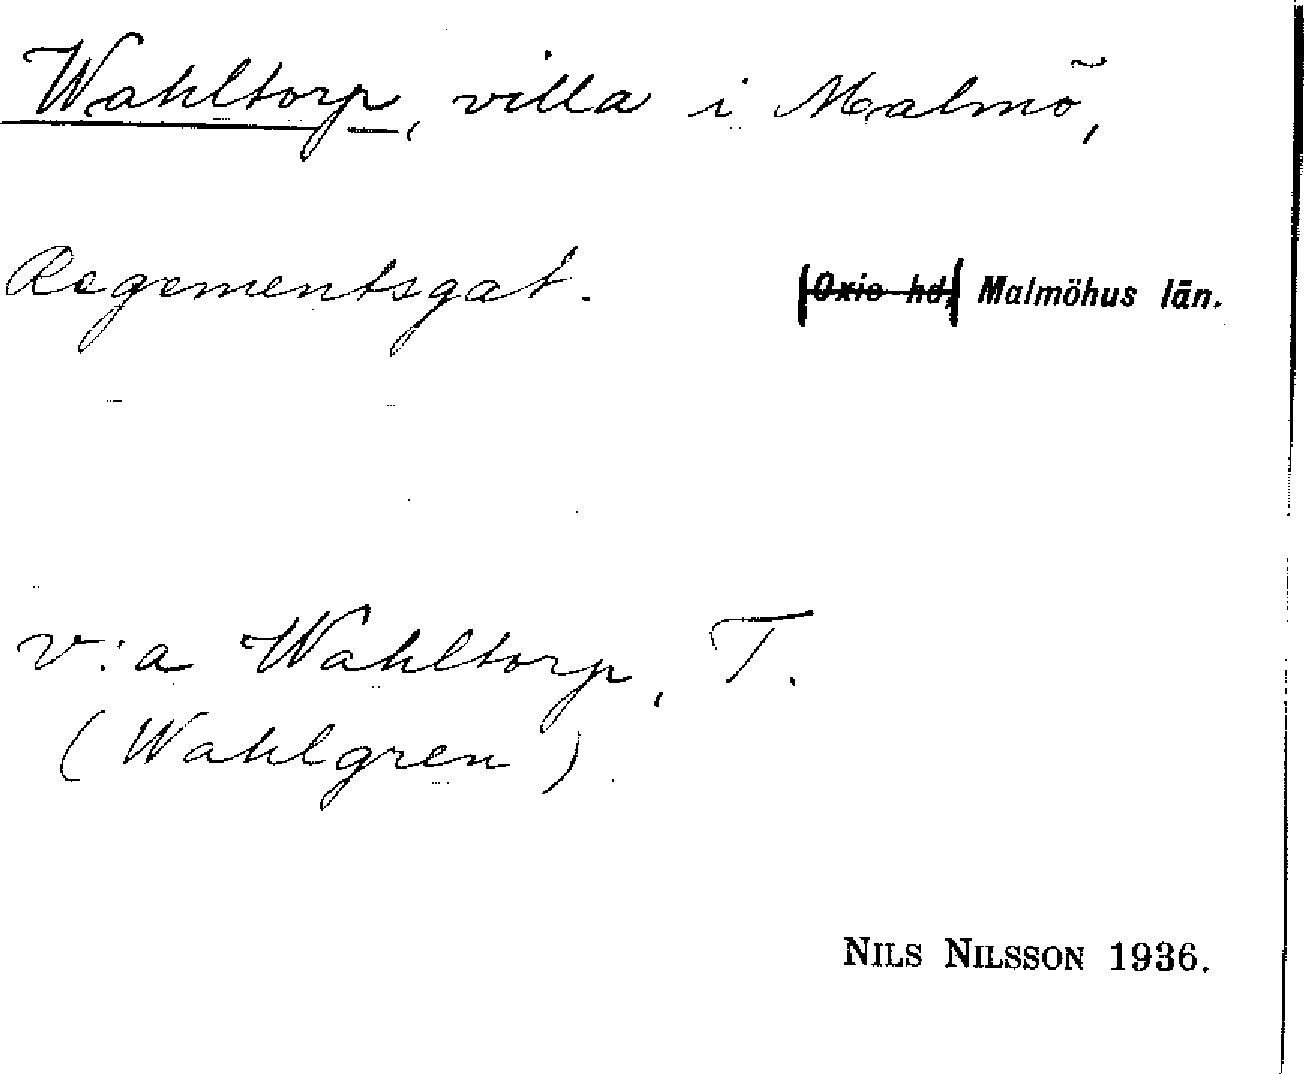 Wahltorp, villa i Malmö,
Regementsgat. (Oxie hd,) Malmöhus län.
v:a Wahltorp, T.
(Wahlgren)
NILS NILSSON 1936.